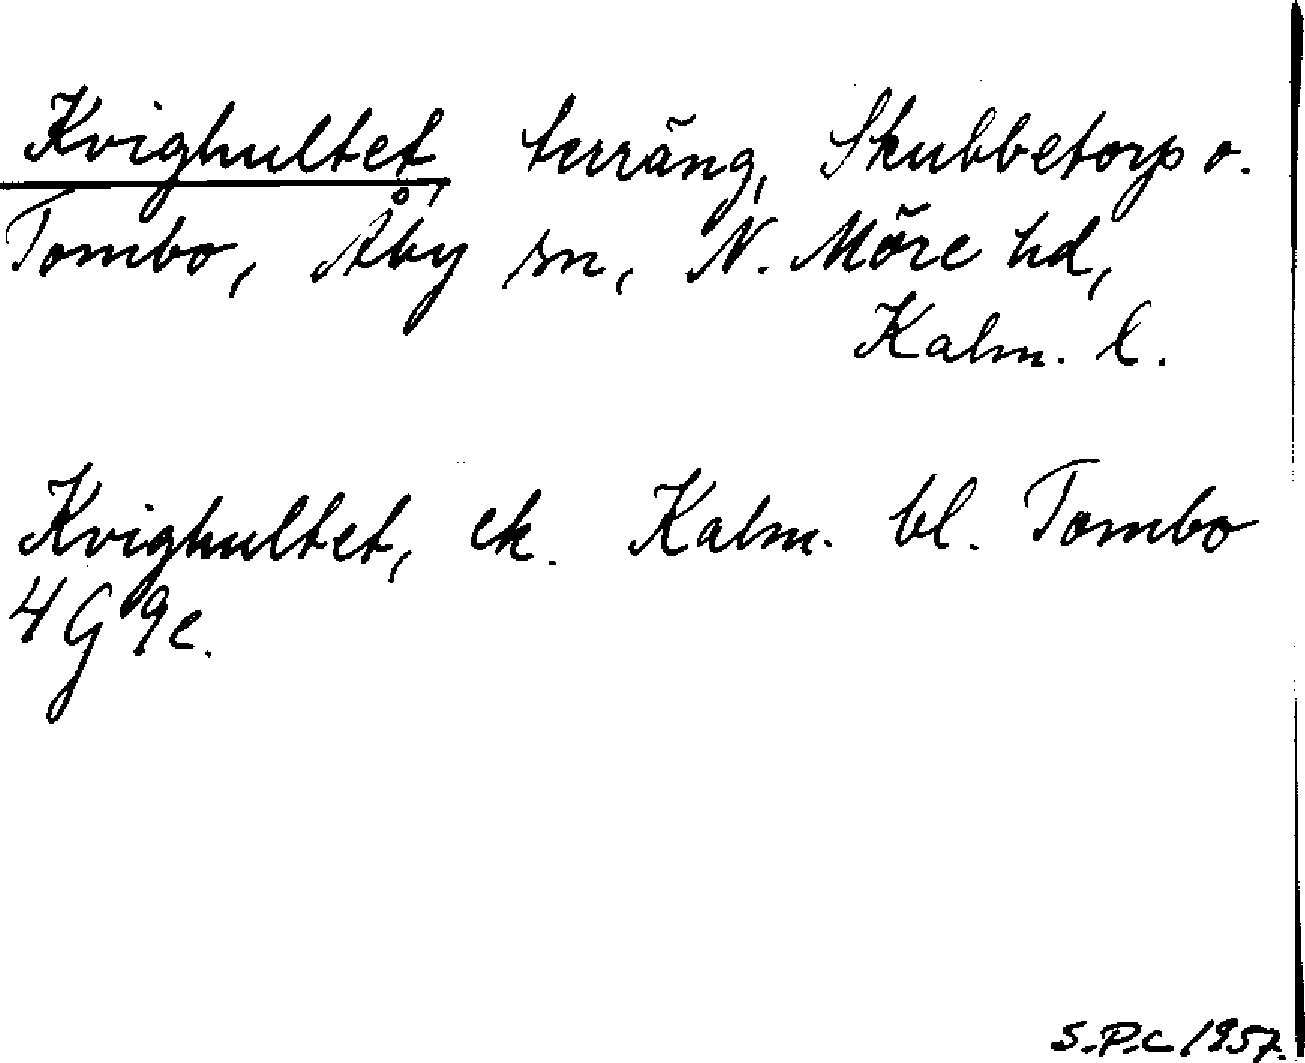 Kvighultet, terräng, Skubbetorp o.
Tombo, Åby sn, N. Möre hd,
Kalm. l.
Kvighultet, ek. Kalm. bl. Tombo
4 G 9 c.
S.P.C 1957.